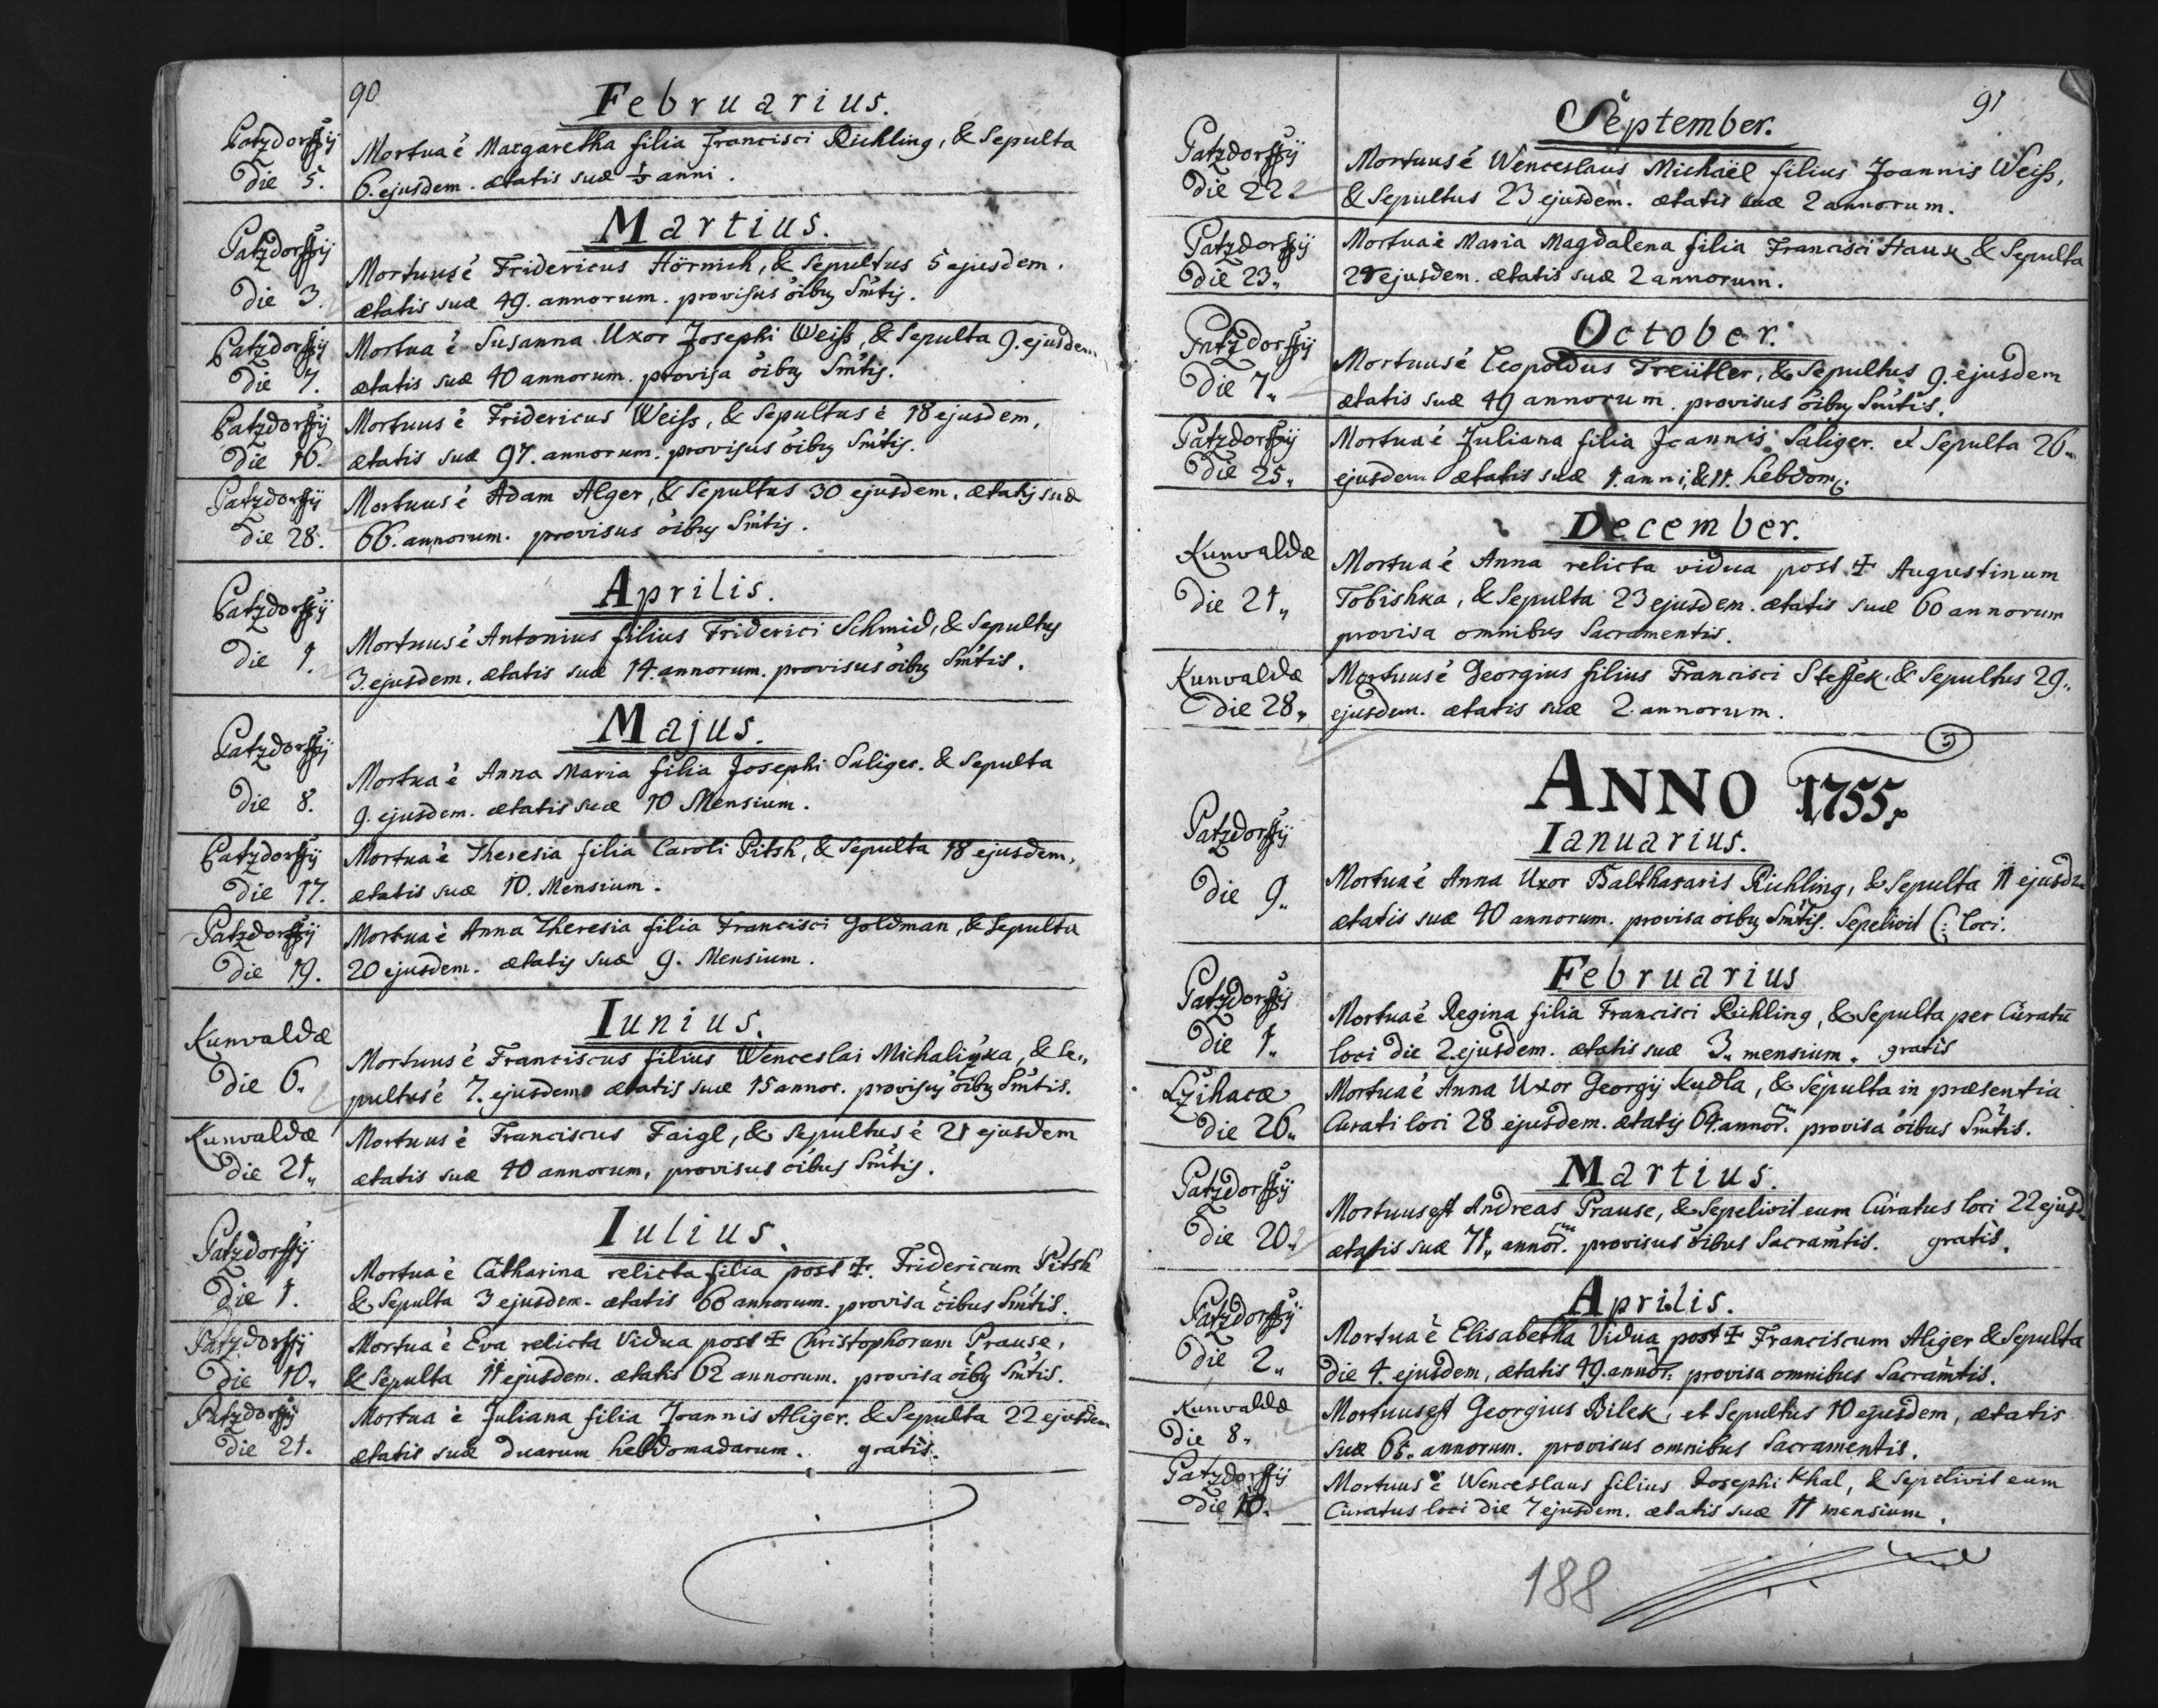 90
Februarius.
Patzdorffij
Die 5.
Mortua è Margaretha filia Francisci Richling, & Sepulta
6. ejusdem. ætatis suæ ½ anni.
Martius.
Patzdorffij
Die 3.
Mortuus è Fridericus Hörnich, & Sepultus 5 ejusdem.
ætatis suæ 49. annorum. provisus oibus Smtis.
Patzdorffij
Die 7.
Mortua è Susanna Uxor Josephi Weiss, & Sepulta 9. ejusdem
ætatis suæ 40 annorum. provisa oibus Smtis.
Patzdorffij
Die 16.
Mortuus è Fridericus Weiss, & Sepultus è 18 ejusdem,
ætatis suæ 97. annorum. provisus oibus Smtis.
Patzdorffij
Die 28.
Mortuus è Adam Alger, & Sepultus 30 ejusdem. ætatis suæ
66. annorum. provisus oibus Smtis.
Aprilis.
Patzdorffij
Die 1.
Mortuus è Antonius filius Friderici Schmid, & Sepultus
3. ejusdem. ætatis suæ 14. annorum. provisus oibus Smtis.
Majus.
Patzdorffij
Die 8.
Mortua è Anna Maria filia Josephi Saliger. & Sepulta
9. ejusdem. ætatis suæ 10 Mensium.
Patzdorffij
Die 17.
Mortua è Theresia filia Caroli Pitsh, & Sepulta 18 ejusdem,
ætatis suæ 10. Mensium.
Patzdorffij
Die 19.
Mortua è Anna Theresia filia Francisci Goldman, & Sepulta
20 ejusdem. ætatis suæ 9. Mensium.
Iunius.
Kunvaldæ
Die 6.
Mortuus è Franciscus filius Wenceslai Michaliczka, & Se„
pultus è 7. ejusdem ætatis suæ 15 annor. provisus oibus Smtis.
Kunvaldæ
Die 21„
Mortuus è Franciscus Faigl, & Sepultus è 21 ejusdem
ætatis suæ 40 annorum, provisus oibus Smtis.
Iulius.
Patzdorffij
Die 1.
Mortua è Catharina relicta filia post ‡. Fridericum Pitsh
& Sepulta 3 ejusdem. ætatis 66 annorum. provisa oibus Smtis.
Patzdorffij
Die 10„
Mortua è Eva relicta Vidua post ‡ Christophorum Prause,
& Sepulta 11 ejusdem. ætatis 62 annorum. provisa oibus Smtis.
Patzdorffij
Die 21.
Mortua è Juliana filia Joannis Aliger. & Sepulta 22 ejusdem
ætatis suæ duarum hebdomadarum. gratis.
91
September.
Patzdorffij
Die 22
Mortuus è Wenceslaus Michaël filius Joannis Weiss,
& Sepultus 23 ejusdem. ætatis suæ 2 annorum.
Patzdorffij
Die 23„
Mortua è Maria Magdalena filia Francisci Hauk & Sepulta
ejusdem. ætatis suæ 2 annorum.
October.
Patzdorffij
Die 7„
Mortuus è Leopoldus Treütler, & Sepultus 9. ejusdem
ætatis suæ 49 annorum. provisus oibus Smtis.
Patzdorffij
Die 25„
Mortua è Juliana filia Joannis Saliger. et Sepulta 26„
ejusdem ætatis suæ 1. anni, & 11. hebdom:
December.
Kunvaldæ
Die 21„
Mortua è Anna relicta vidua post ‡ Augustinum
Tobishka, & Sepulta 23 ejusdem. ætatis suæ 60 annorum
provisa omnibus Sacramentis.
Kunvaldæ
Die 28„
Mortuus è Georgius filius Francisci Steffek & Sepultus 29„
ejusdem. ætatis suæ 2. annorum.
ANNO 1755.
Ianuarius.
Patzdorffij
Die 9„
Mortua è Anna Uxor Balthasaris Richling, & Sepulta 11 ejusdem
ætatis suæ 40 annorum. provisa oibus Smtis. Sepelivit C: loci.
Februarius
Patzdorffij
Die 1„
Mortua è Regina filia Francisci Richling, & Sepulta per Curatū
loci die 2. ejusdem. ætatis suæ 3„ mensium„ gratis
Lzihacæ
Die 26„
Mortua è Anna Uxor Georgij Kudla, & Sepulta in præsentia
Curati loci 28 ejusdem. ætatis 64. annor. provisa oibus Smtis.
Martius.
Patzdorffij
Die 20„
Mortuus est Andreas Prause, & Sepelivit eum Curatus loci 22 ejusd.
ætatis suæ 71„ annor. provisus oibus Sacramtis. gratis.
Aprilis.
Patzdorffij
Die 2„
Mortua è Elisabetha Vidua post ‡ Franciscum Aliger & Sepulta
die 4. ejusdem, ætatis 49. annor. provisa omnibus Sacramtis.
Kunvaldæ
Die 8„
Mortuus est Georgius Bilek, et Sepultus 10 ejusdem, ætatis
suæ 65. annorum. provisus omnibus Sacramentis.
Patzdorffij
Die 10.
Mortuus è Wenceslaus filius Josephi Khal, & Sepelivit eum
Curatus loci die 7 ejusdem. ætatis suæ 11 mensium.
188